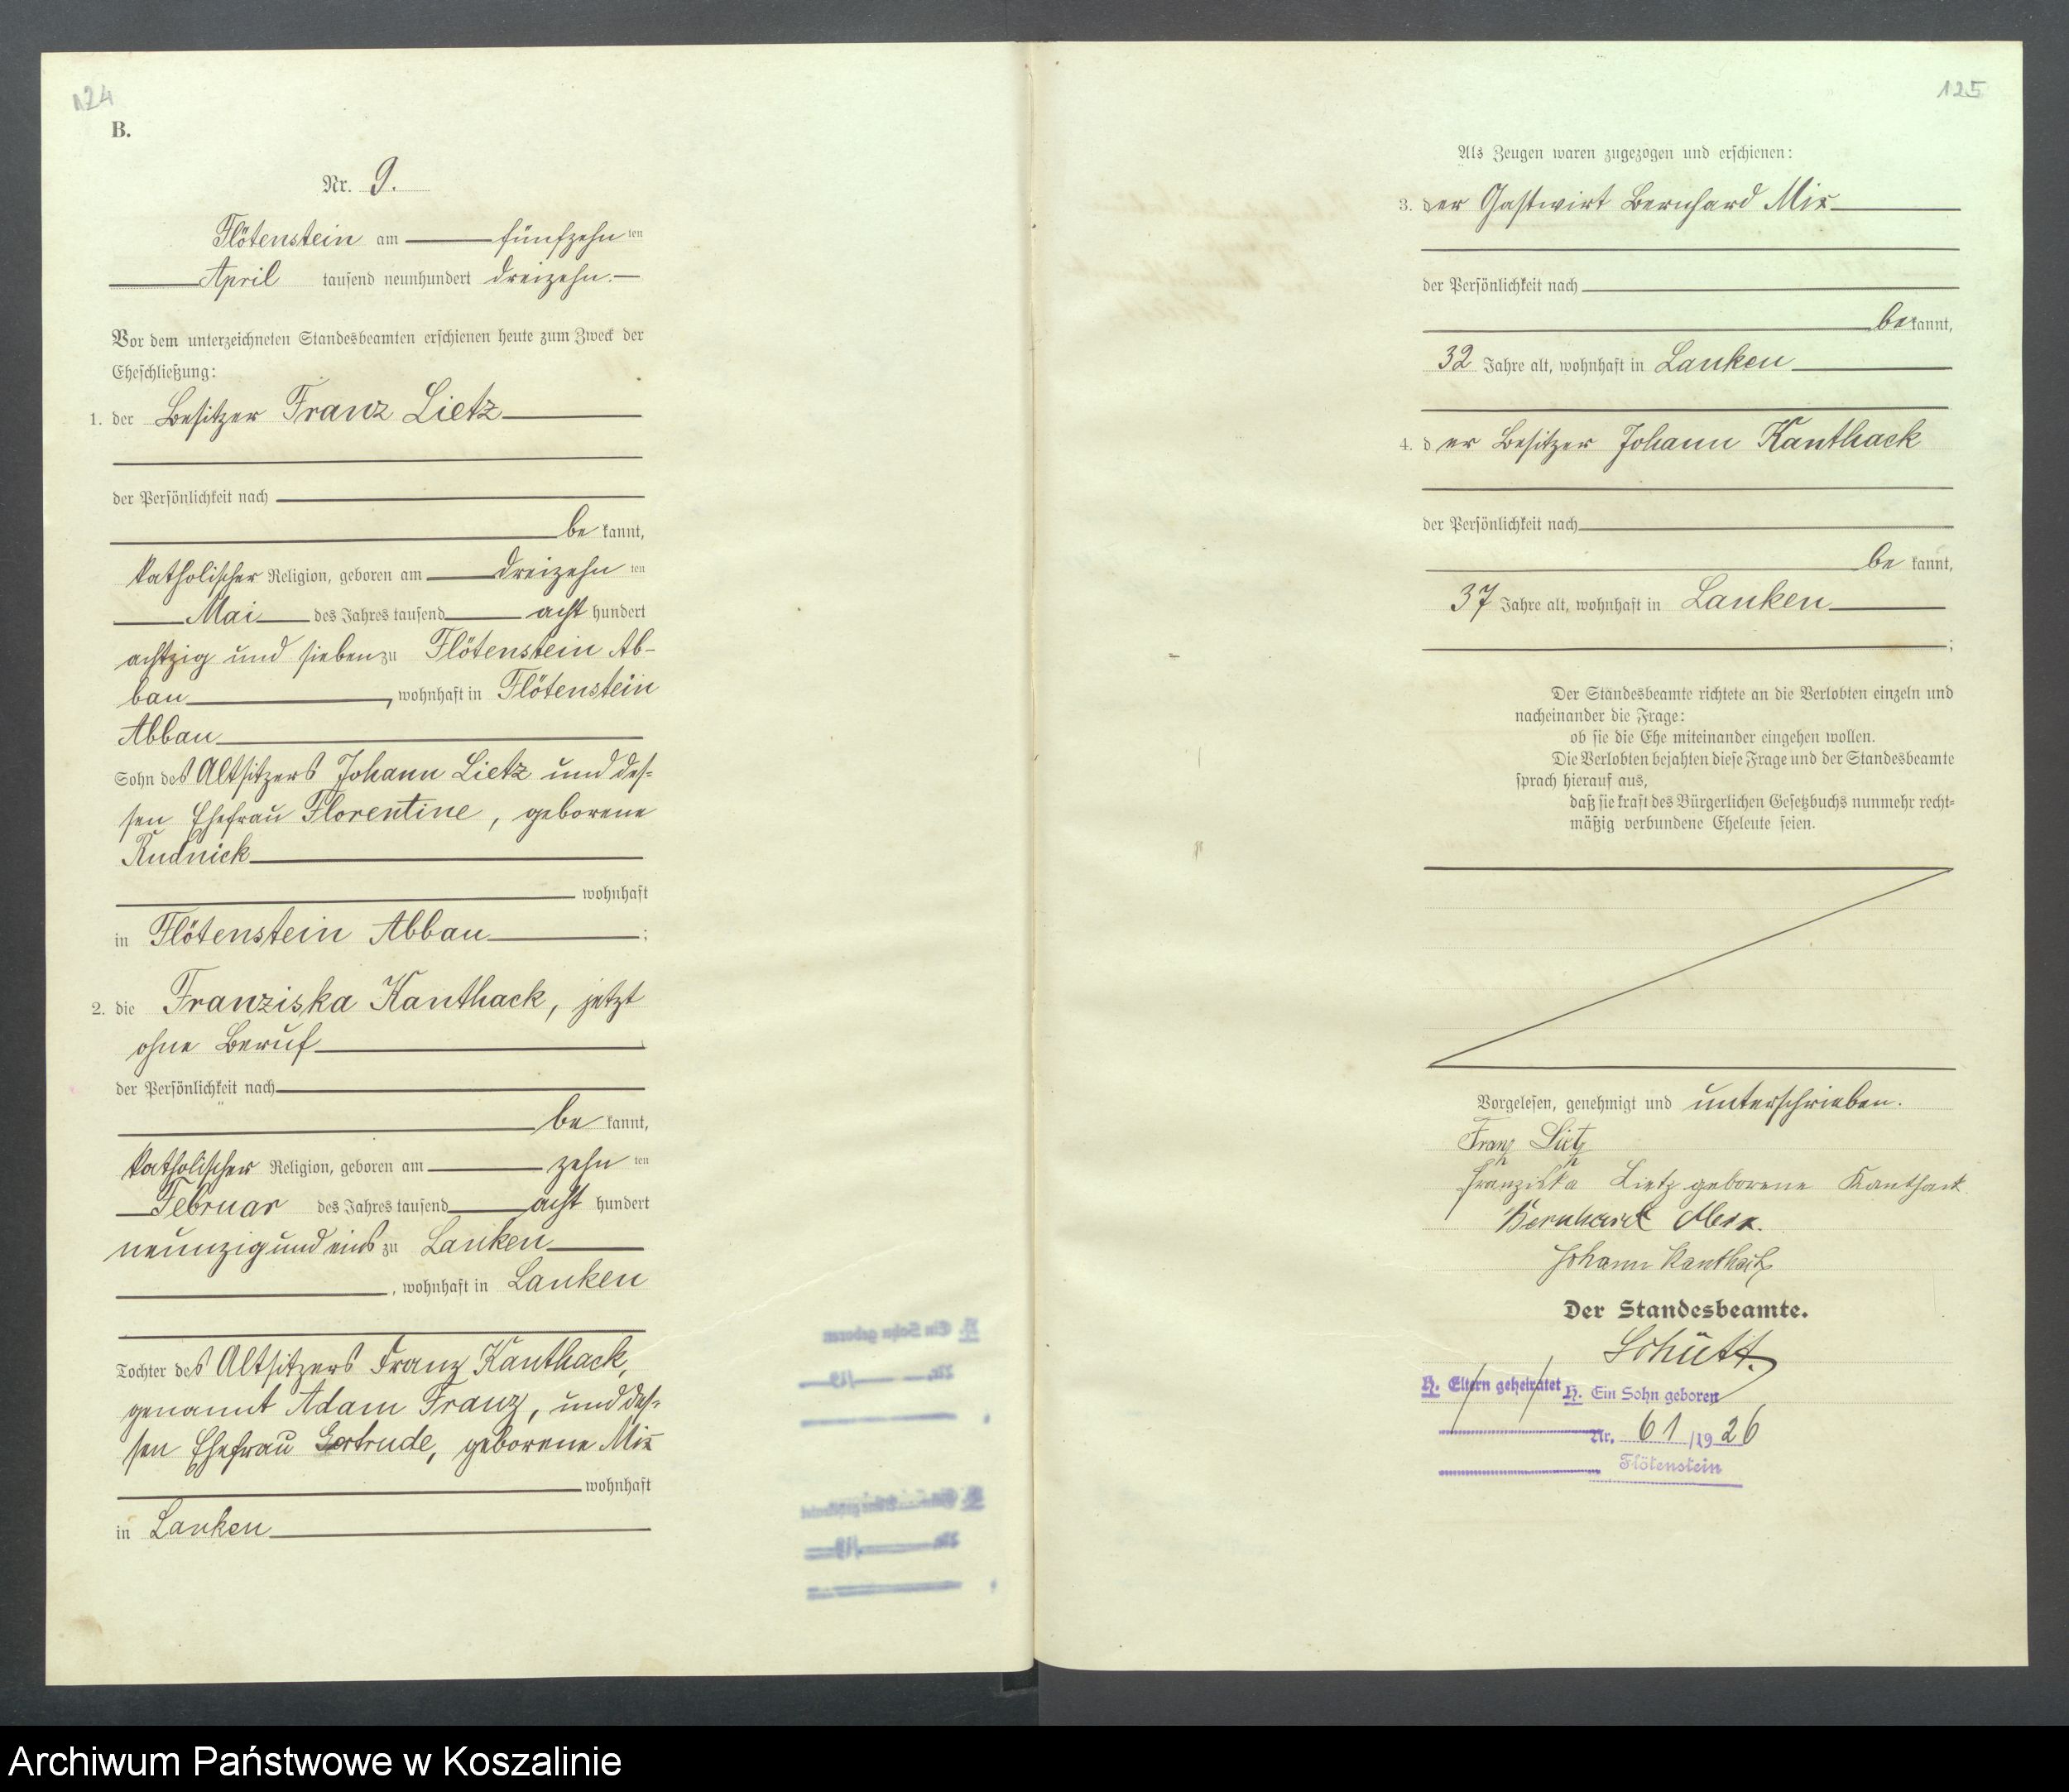 124
B.
Nr. 9.
Flötenstein am fünfzehn ten
April tausend neunhundert dreizehn.
Vor dem unterzeichneten Standesbeamten erschienen heute zum Zweck der
Eheschließung:
1. der Besitzer Franz Lietz
der Persönlichkeit nach
be kannt,
katholischer Religion, geboren am dreizehn ten
Mai des Jahres tausend acht hundert
achtzig und sieben zu Flötenstein Ab-
bau, wohnhaft in Flötenstein
Abbau
Sohn des Altsitzers Johann Lietz und des-
sen Ehefrau Florentine, geborene
Rudnick
wohnhaft
in Flötenstein Abbau;
2. die Franziska Kanthack, jetzt
ohne Beruf
der Persönlichkeit nach
be kannt,
katholischer Religion, geboren am zehn ten
Februar des Jahres tausend acht hundert
neunzig und eins zu Lanken
, wohnhaft in Lanken
Tochter des Altsitzers Franz Kanthack,
genannt Adam Franz, und des-
sen Ehefrau Gertrude, geborene Mix
wohnhaft
in Lanken
125
Als Zeugen waren zugezogen und erschienen:
3. der Gastwirt Bernhard Mix
der Persönlichkeit nach
bekannt,
32 Jahre alt, wohnhaft in Lanken
4. der Besitzer Johann Kanthack
der Persönlichkeit nach
be kannt,
37 Jahre alt, wohnhaft in Lanken
;
Der Standesbeamte richtete an die Verlobten einzeln und
nacheinander die Frage:
ob sie die Ehe miteinander eingehen wollen.
Die Verlobten bejahten diese Frage und der Standesbeamte
sprach hierauf aus,
daß sie kraft des Bürgerlichen Gesetzbuchs nunmehr recht-
mäßig verbundene Eheleute seien.
Vorgelesen, genehmigt und unterschrieben.
Franz Lietz
Franziska Lietz geborene Kanthack
Bernhard Mix.
Johann Kanthack
Der Standesbeamte.
Schütt.
H. Eltern geheiratet H. Ein Sohn geboren
Nr. 61/1926
Flötenstein
Archiwum Państwowe w Koszalinie